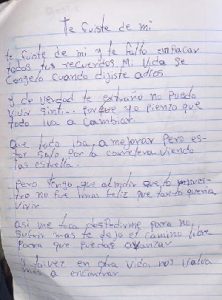 Te fuiste de mi
te fuiste de mi y te falto empacar
todos tus recuerdos Mi Vida se
Congelo cuando dijiste adios
y de verdad te extraño no puedo
Vivir sin ti... porque yo pienzo que
todo iva a cambiar
Que todo iba a mejorar Pero es
tar solo Por la carretera viendo
las estrella
Pero tengo que admitir que tu
no fue tan feliz que tanto quería
Vivir
asi me toca despedirme para no
sufrir mas te dejo el camino libre
para que puedas avanzar
y talvez en otra vida nos vuelva
mos a encontrar